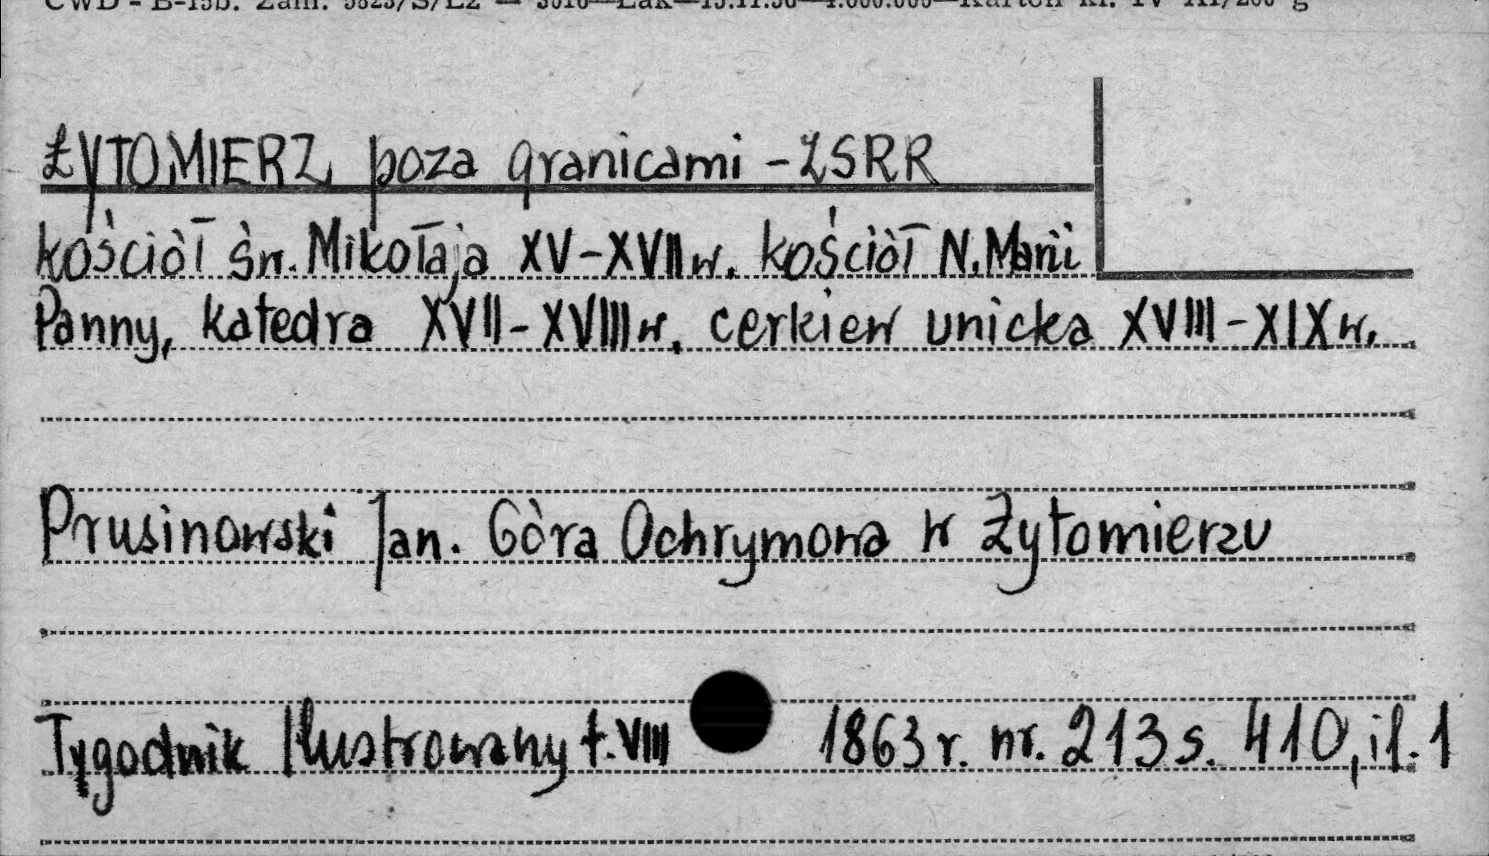 ŻYTOMIERZ, poza granicami - ZSRR
kościół św. Mikołaja XV-XVII w. kościół N. Marii
Panny, katedra XVII-XVIII w. cerkiew unicka XVIII-XIX w.
Prusinowski Jan. Góra Ochrymowa w Żytomierzu
Tygodnik Ilustrowany t. VIII 1863 r. nr. 213 s. 410, il. 1